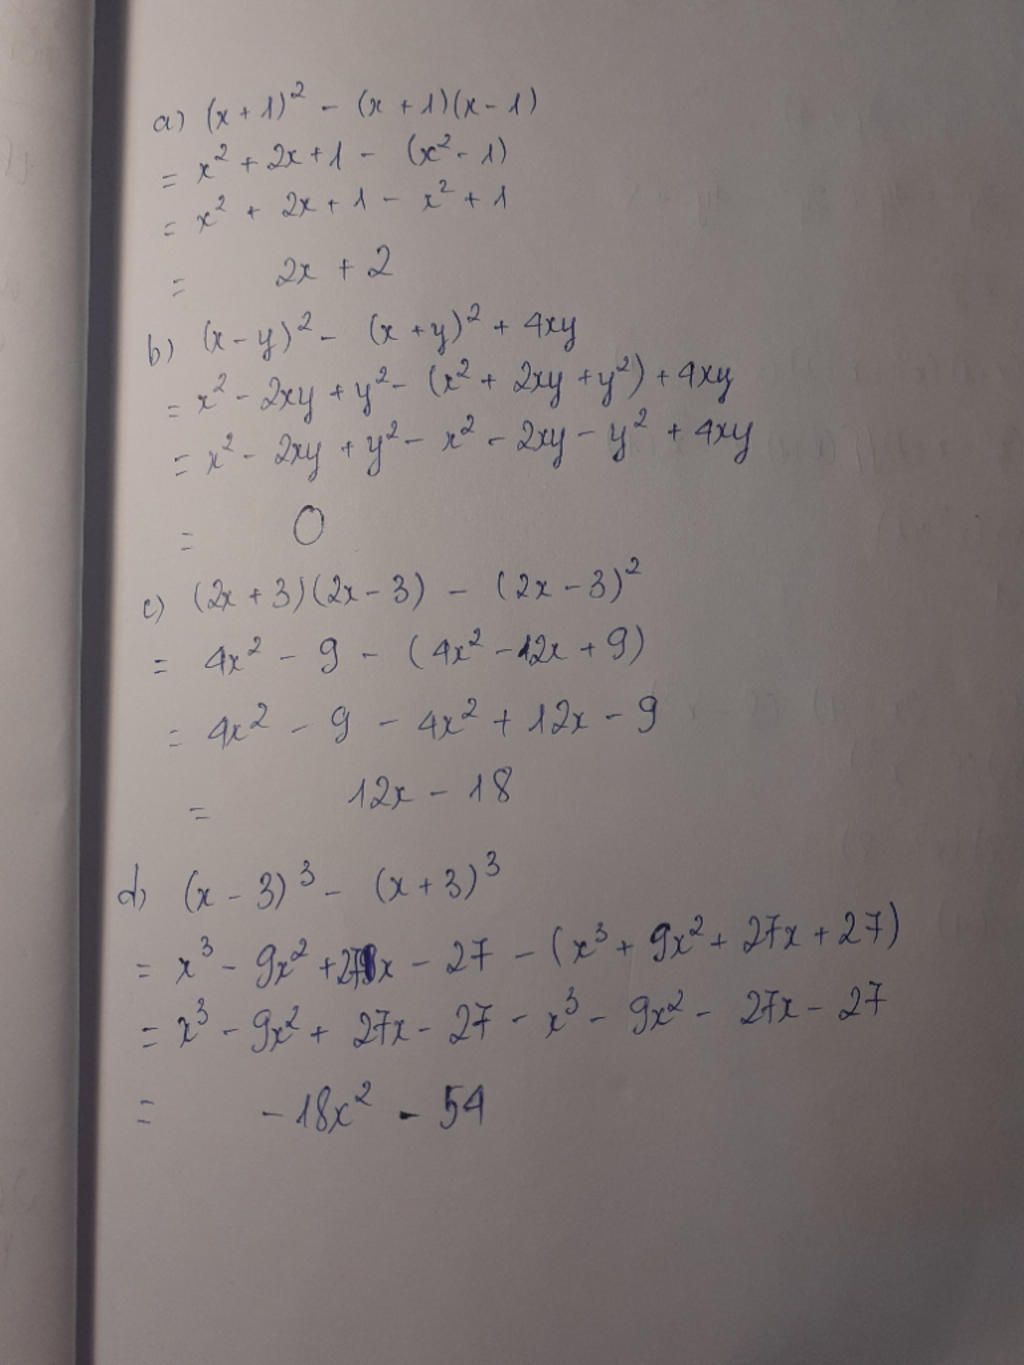 a) (x + 1)² - (x + 1)(x - 1)
= x² + 2x + 1 - (x² - 1)
= x² + 2x + 1 - x² + 1
= 2x + 2
b) (x - y)² - (x + y)² + 4xy
= x² - 2xy + y² - (x² + 2xy + y²) + 4xy
= x² - 2xy + y² - x² - 2xy - y² + 4xy
= 0
c) (2x + 3)(2x - 3) - (2x - 3)²
= 4x² - 9 - (4x² - 12x + 9)
= 4x² - 9 - 4x² + 12x - 9
= 12x - 18
d) (x - 3)³ - (x + 3)³
= x³ - 9x² + 27x - 27 - (x³ + 9x² + 27x + 27)
= x³ - 9x² + 27x - 27 - x³ - 9x² - 27x - 27
= - 18x² - 54